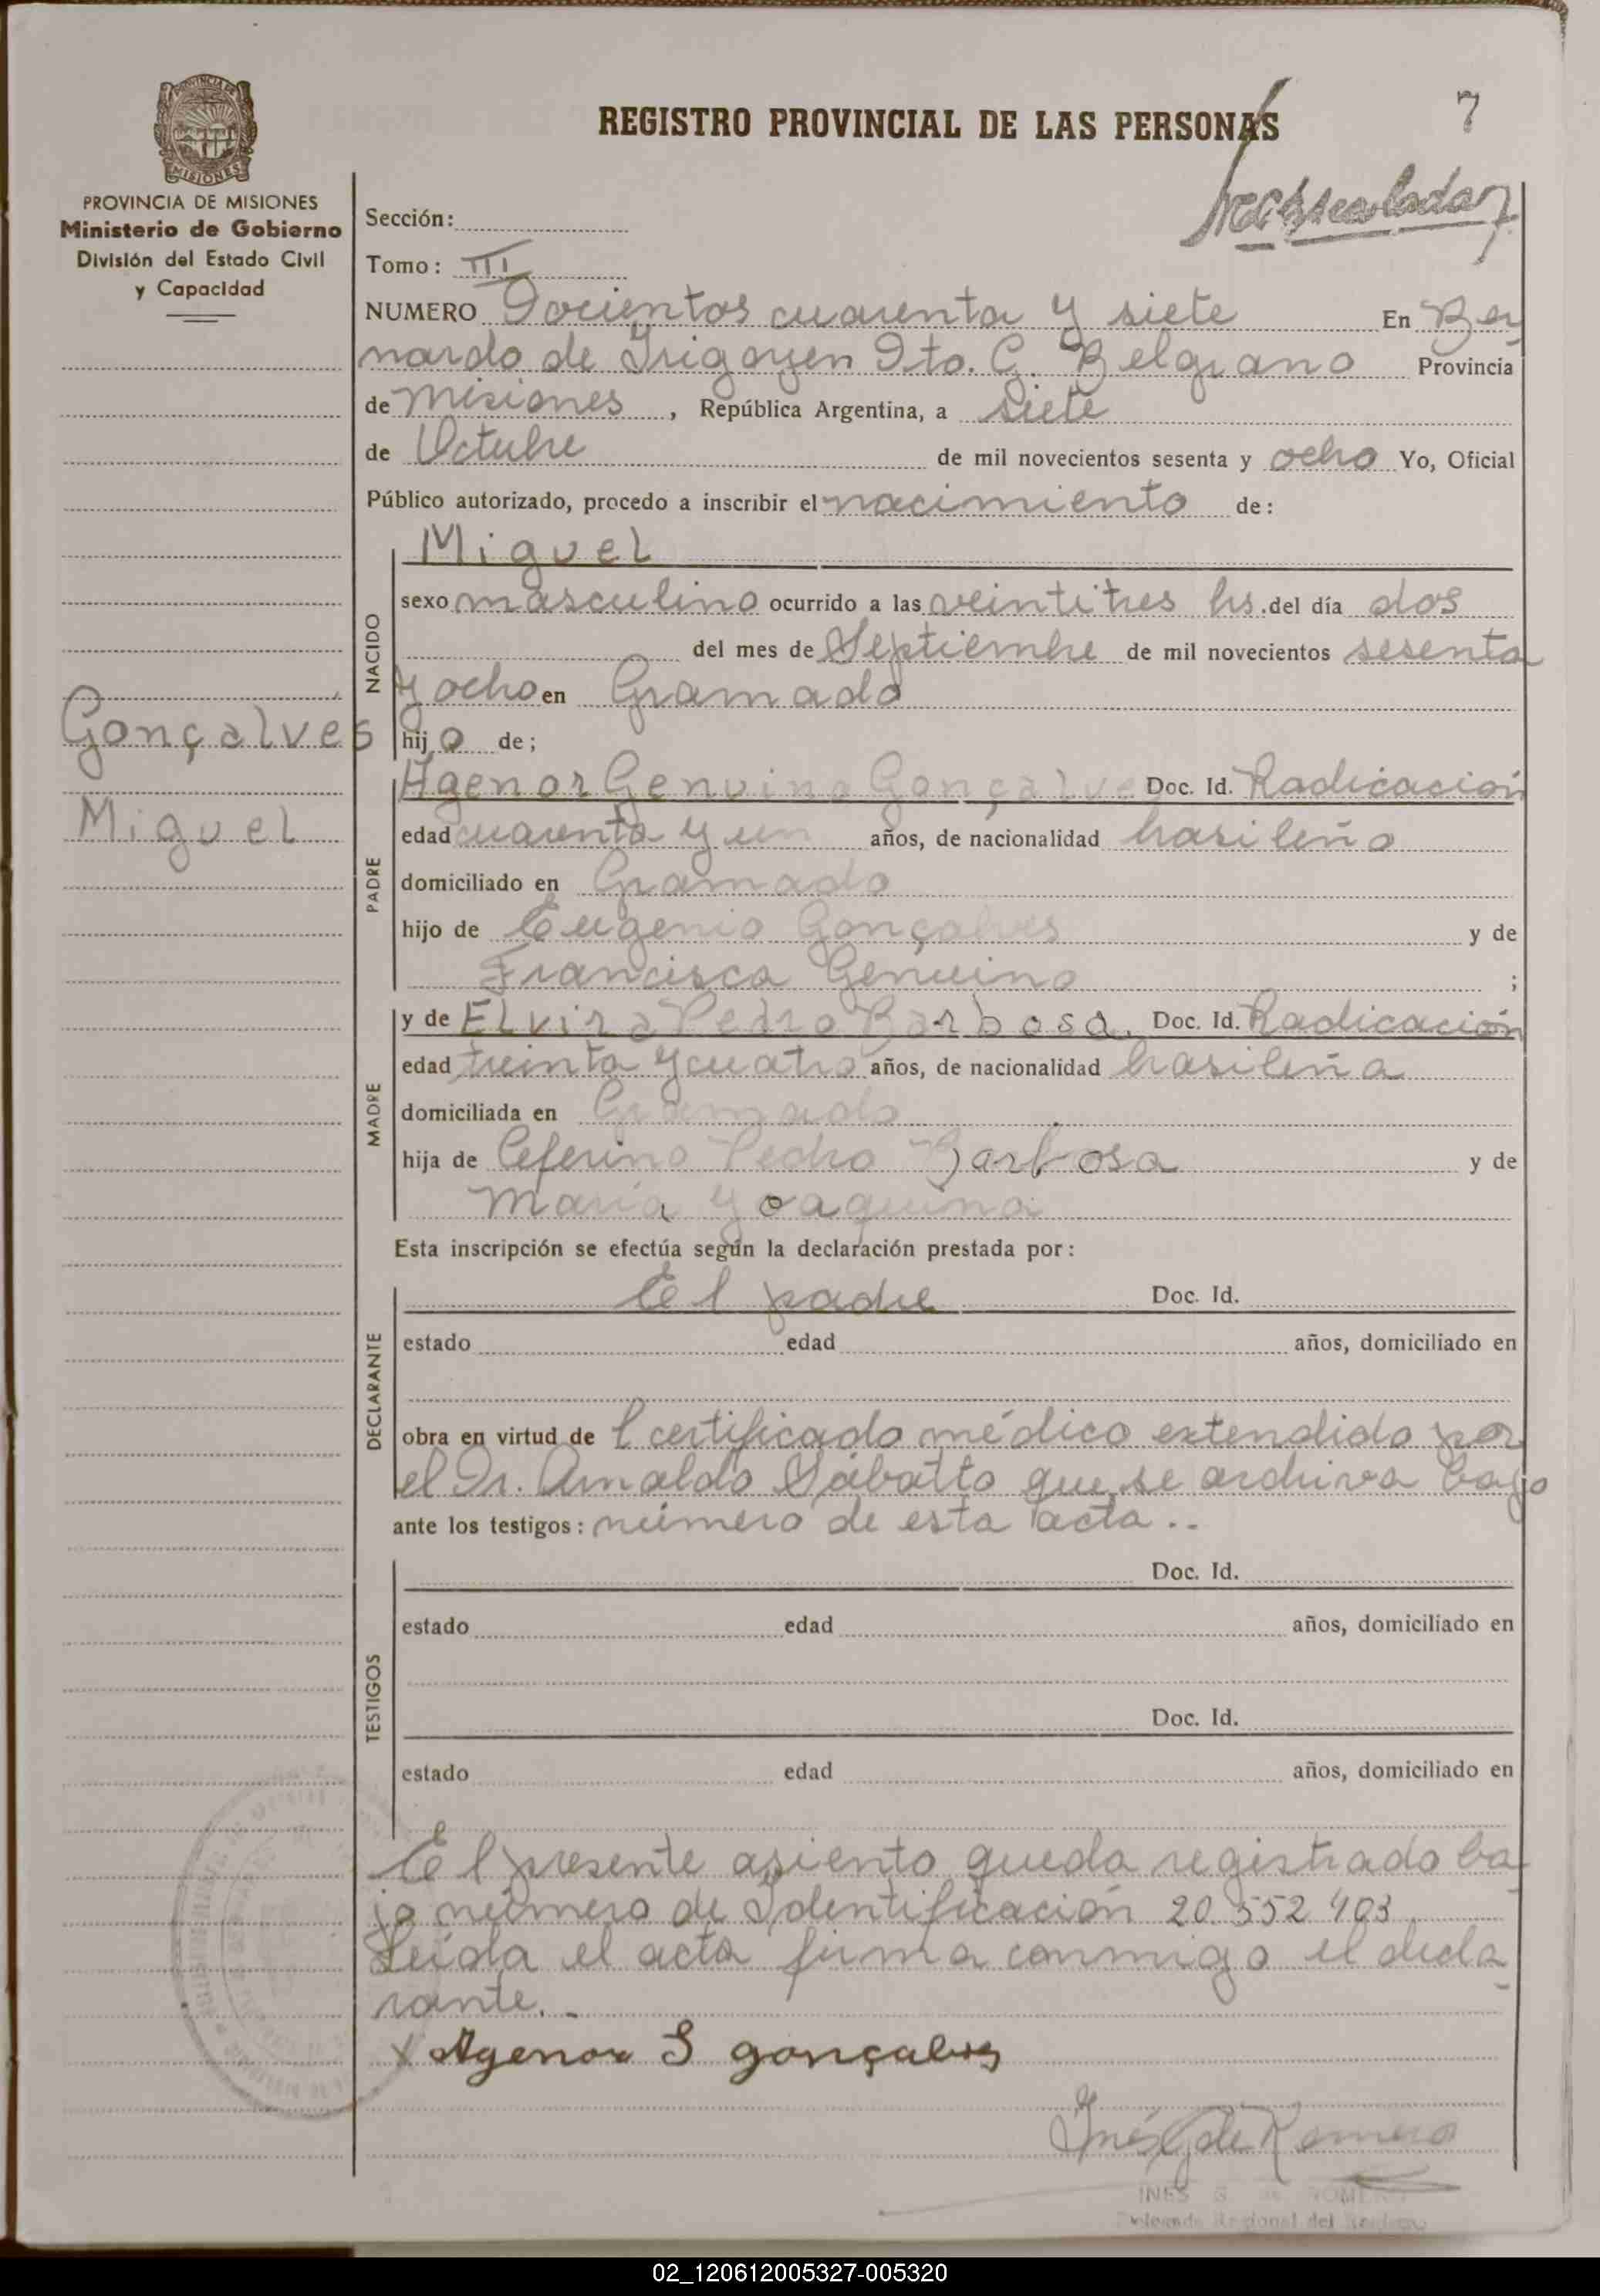 REGISTRO PROVINCIAL DE LAS PERSONAS
7
PROVINCIA DE MISIONES
Ministerio de Gobierno
División del Estado Civil
y Capacidad
MISIONES
Sección:
Tomo: III
NUMERO Docientos cuarenta y siete En Ber
nardo de Irigoyen Dto. G. Belgrano Provincia
de Misiones, República Argentina, a siete
de Octubre de mil novecientos sesenta y ocho Yo, Oficial
Público autorizado, procedo a inscribir el nacimiento de:
Miguel
NACIDO
sexo masculino ocurrido a las veintitres hs. del día dos
del mes de Septiembre de mil novecientos sesenta
y ocho en Gramado
Gonçalves
Miguel
hijo de;
PADRE
Agenor Genuino Gonçalves Doc. Id. Radicación
edad cuarenta y un años, de nacionalidad brasileño
domiciliado en Gramado
hijo de Eugenio Gonçalves y de
Francisca Genuino;
MADRE
y de Elvira Pedro Barbosa. Doc. Id. Radicación
edad treinta y cuatro años, de nacionalidad brasileña
domiciliada en Gramado
hija de Ceferino Pedro Barbosa y de
María Yoaquina
Esta inscripción se efectúa según la declaración prestada por:
DECLARANTE
El padre Doc. Id.
estado edad años, domiciliado en
obra en virtud de l certificado médico extendido por
el Dr. Arnaldo Sábatto que se archiva bajo
ante los testigos: número de esta acta..
TESTIGOS
Doc. Id.
estado edad años, domiciliado en
Doc. Id.
estado edad años, domiciliado en
El presente asiento queda registrado ba-
jo número de Identificación 20.552.403.
Leída el acta firma conmigo el decla-
rante.-
x Agenor S gonçalves
Inés G de Romero
INES G. de ROMERO
02_120612005327-005320